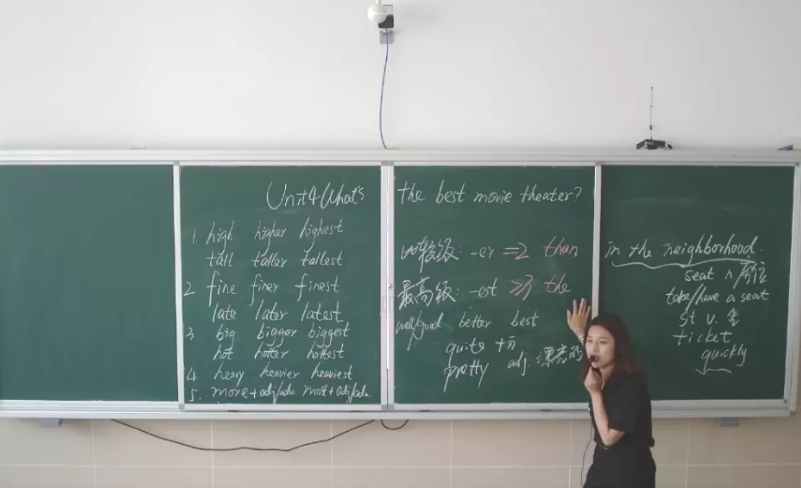 Unit4 What's the best movie theater?
1. high higher highest
tall taller tallest
2 fine finer finest
late later latest
3 big bigger biggest
hot hotter hottest
4. heavy heavier heaviest
5. more+adj/adv. most+adj/adv.
比较级: -er =2 than
最高级: -est ≥3 the
well/good better best
quite 十分
pretty adj. 漂亮的
in the neighborhood.
seat n 座位
take/have a seat
sit v. 坐
ticket
quickly